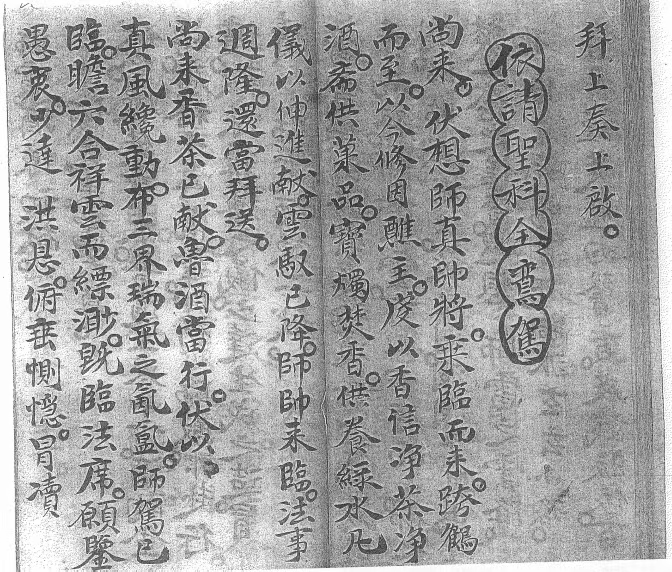 拜上奏上啟。
依請聖科全鸞駕
尚來。伏想師真帥將。乘臨而來。跨鶴
而至。以今修因醮主。虔以香信净茶净
酒。斋供菓品。寳燭焚香。供養綠水凡
儀以伸進献。雲馭已降。師帥来臨。法事
週隆。還當拜送。
尚来香茶已献。魯酒當行。伏以。
真風纔動。布三界瑞氣之氤氲。師駕已
臨。瞻六合祥雲而縹渺。既臨法席。願鑒
愚衷。少達 洪恩。俯垂惻憶。冒凟